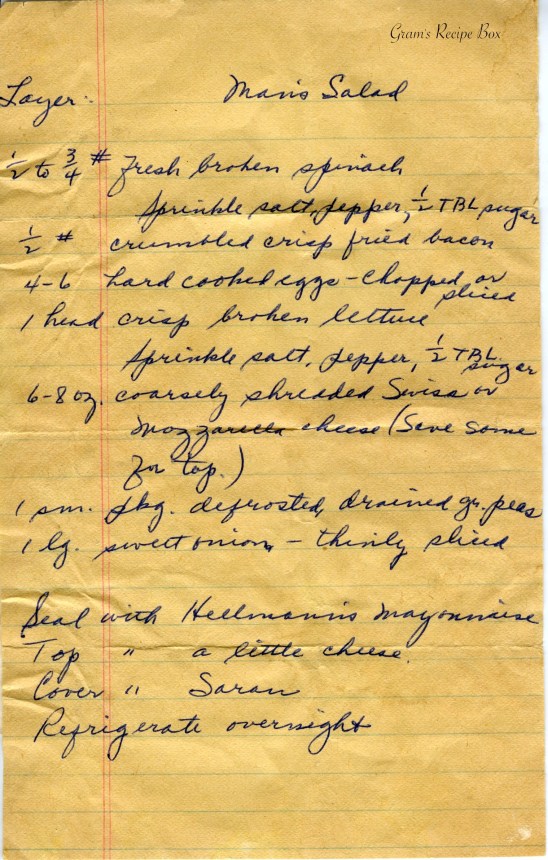 Gram's Recipe Box
Layer: Man's Salad
1/2 to 3/4 # fresh broken spinach
Sprinkle salt, pepper, 1/2 TBL sugar
1/2 # crumbled crisp fried bacon
4-6 hard cooked eggs - chopped or
sliced
1 head crisp broken lettuce
Sprinkle salt, pepper, 1/2 TBL.
sugar
6-8 oz. coarsely shredded Swiss or
Mozzarella cheese (Save some
for top.)
1 sm. pkg. defrosted, drained gr. peas
1 lg. sweet onion - thinly sliced
Seal with Hellmann's Mayonnaise
Top " a little cheese.
Cover " Saran
Refrigerate overnight